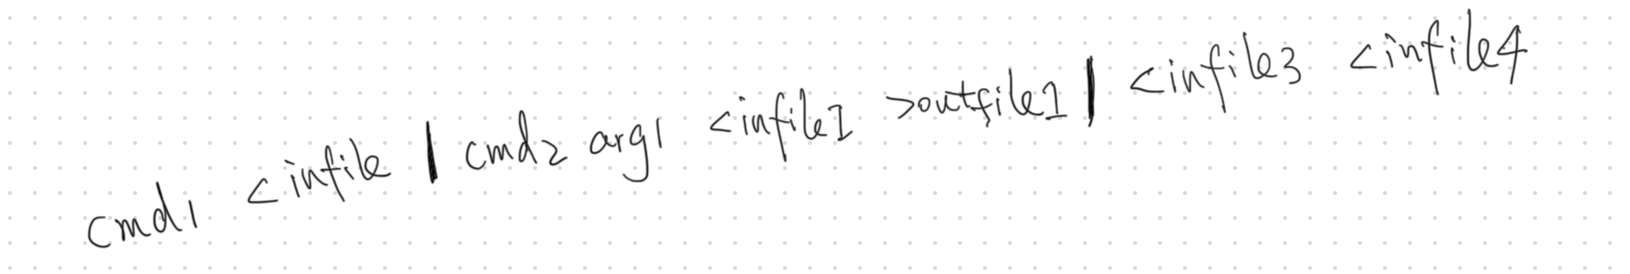 cmd1 <infile | cmd2 arg1 <infile1 >outfile1 | <infile3 <infile4